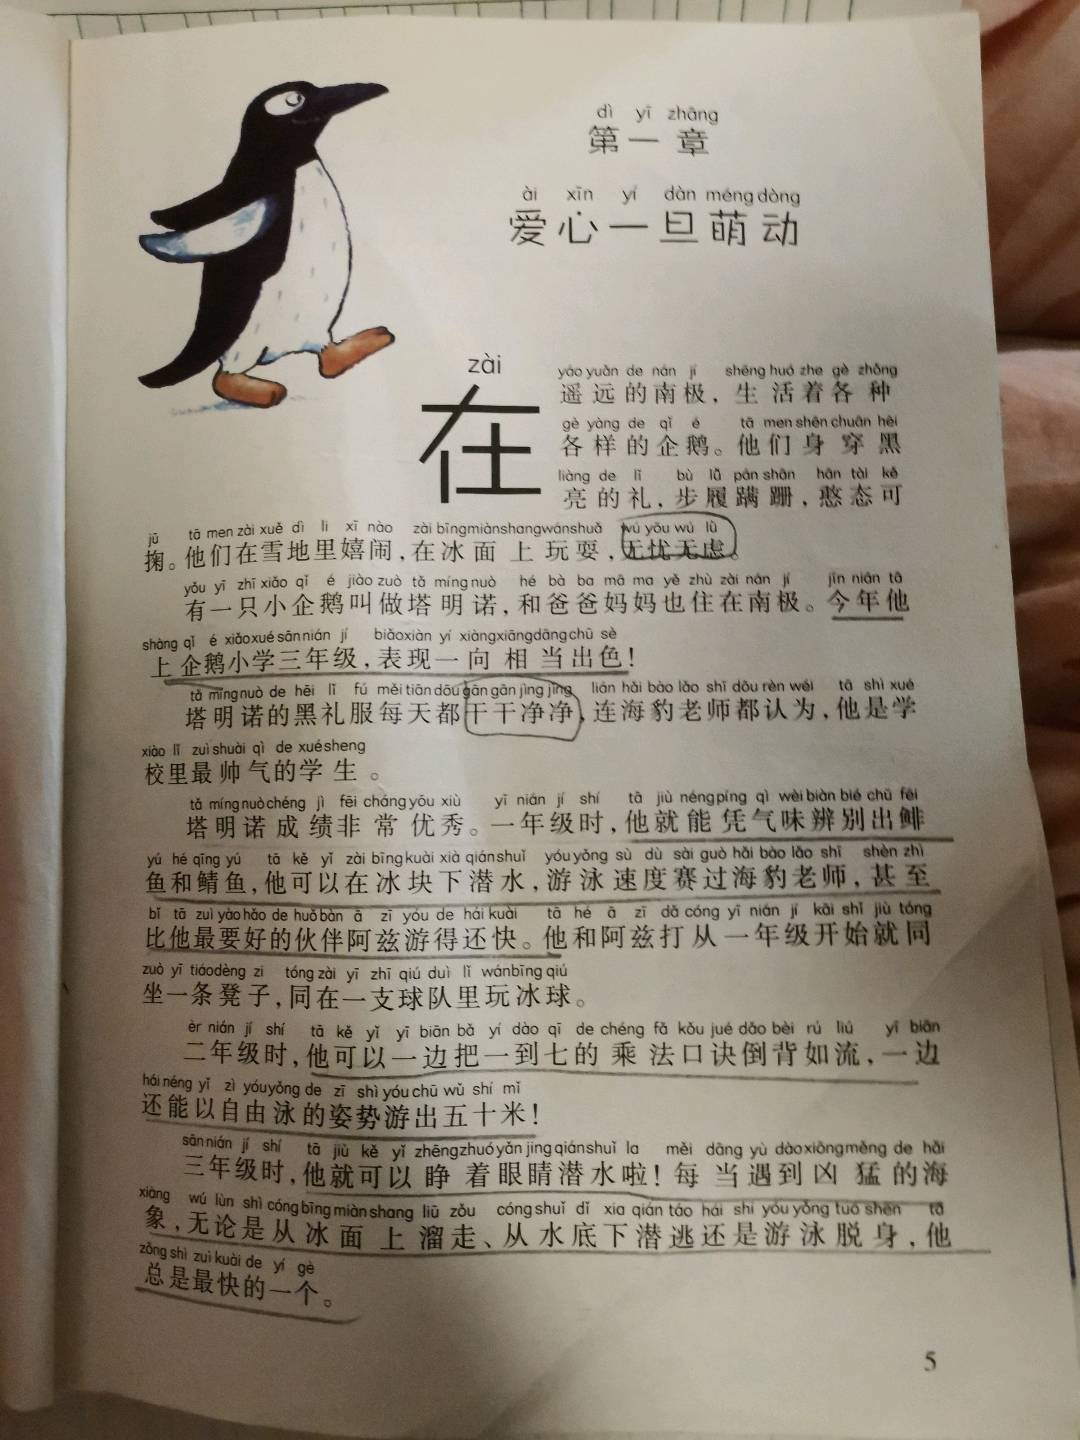 dì yī zhāng
第一章
ài xīn yí dàn méng dòng
爱心一旦萌动
zài
在
yáo yuǎn de nán jí shēng huó zhe gè zhǒng
遥远的南极，生活着各种
gè yàng de qǐ é tā men shēn chuān hēi
各样的企鹅。他们身穿黑
liàng de lǐ bù lǚ pán shān hān tài kě
亮的礼，步履蹒跚，憨态可
jū tā men zài xuě dì li xī nào zài bīng miàn shang wán shuǎ wú yōu wú lǜ
掬。他们在雪地里嬉闹，在冰面上玩耍，无忧无虑。
yǒu yī zhī xiǎo qǐ é jiào zuò tǎ míng nuò hé bà ba mā ma yě zhù zài nán jí jīn nián tā
有一只小企鹅叫做塔明诺，和爸爸妈妈也住在南极。今年他
shàng qǐ é xiǎo xué sān nián jí biǎo xiàn yí xiàng xiāng dāng chū sè
上企鹅小学三年级，表现一向相当出色！
tǎ míng nuò de hēi lǐ fú měi tiān dōu gān gān jìng jìng lián hǎi bào lǎo shī dōu rèn wéi tā shì xué
塔明诺的黑礼服每天都干干净净，连海豹老师都认为，他是学
xiào lǐ zuì shuài qì de xué sheng
校里最帅气的学生。
tǎ míng nuò chéng jì fēi cháng yōu xiù yī nián jí shí tā jiù néng píng qì wèi biàn bié chū fēi
塔明诺成绩非常优秀。一年级时，他就能凭气味辨别出鲱
yú hé qīng yú tā kě yǐ zài bīng kuài xià qián shuǐ yóu yǒng sù dù sài guò hǎi bào lǎo shī shèn zhì
鱼和鲭鱼，他可以在冰块下潜水，游泳速度赛过海豹老师，甚至
bǐ tā zuì yào hǎo de huǒ bàn ā zī yóu de hái kuài tā hé ā zī dǎ cóng yī nián jí kāi shǐ jiù tóng
比他最要好的伙伴阿兹游得还快。他和阿兹打从一年级开始就同
zuò yī tiáo dèng zi tóng zài yī zhī qiú duì lǐ wán bīng qiú
坐一条凳子，同在一支球队里玩冰球。
èr nián jí shí tā kě yǐ yī biān bǎ yí dào qī de chéng fǎ kǒu jué dǎo bèi rú liú yī biān
二年级时，他可以一边把一到七的乘法口诀倒背如流，一边
hái néng yǐ zì yóu yǒng de zī shì yóu chū wǔ shí mǐ
还能以自由泳的姿势游出五十米！
sān nián jí shí tā jiù kě yǐ zhēng zhuó yǎn jing qián shuǐ la měi dāng yù dào xiōng měng de hǎi
三年级时，他就可以睁着眼睛潜水啦！每当遇到凶猛的海
xiàng wú lùn shì cóng bīng miàn shang liū zǒu cóng shuǐ dǐ xia qián táo hái shi yóu yǒng tuō shēn tā
象，无论是从冰面上溜走、从水底下潜逃还是游泳脱身，他
zǒng shì zuì kuài de yí gè
总是最快的一个。
5